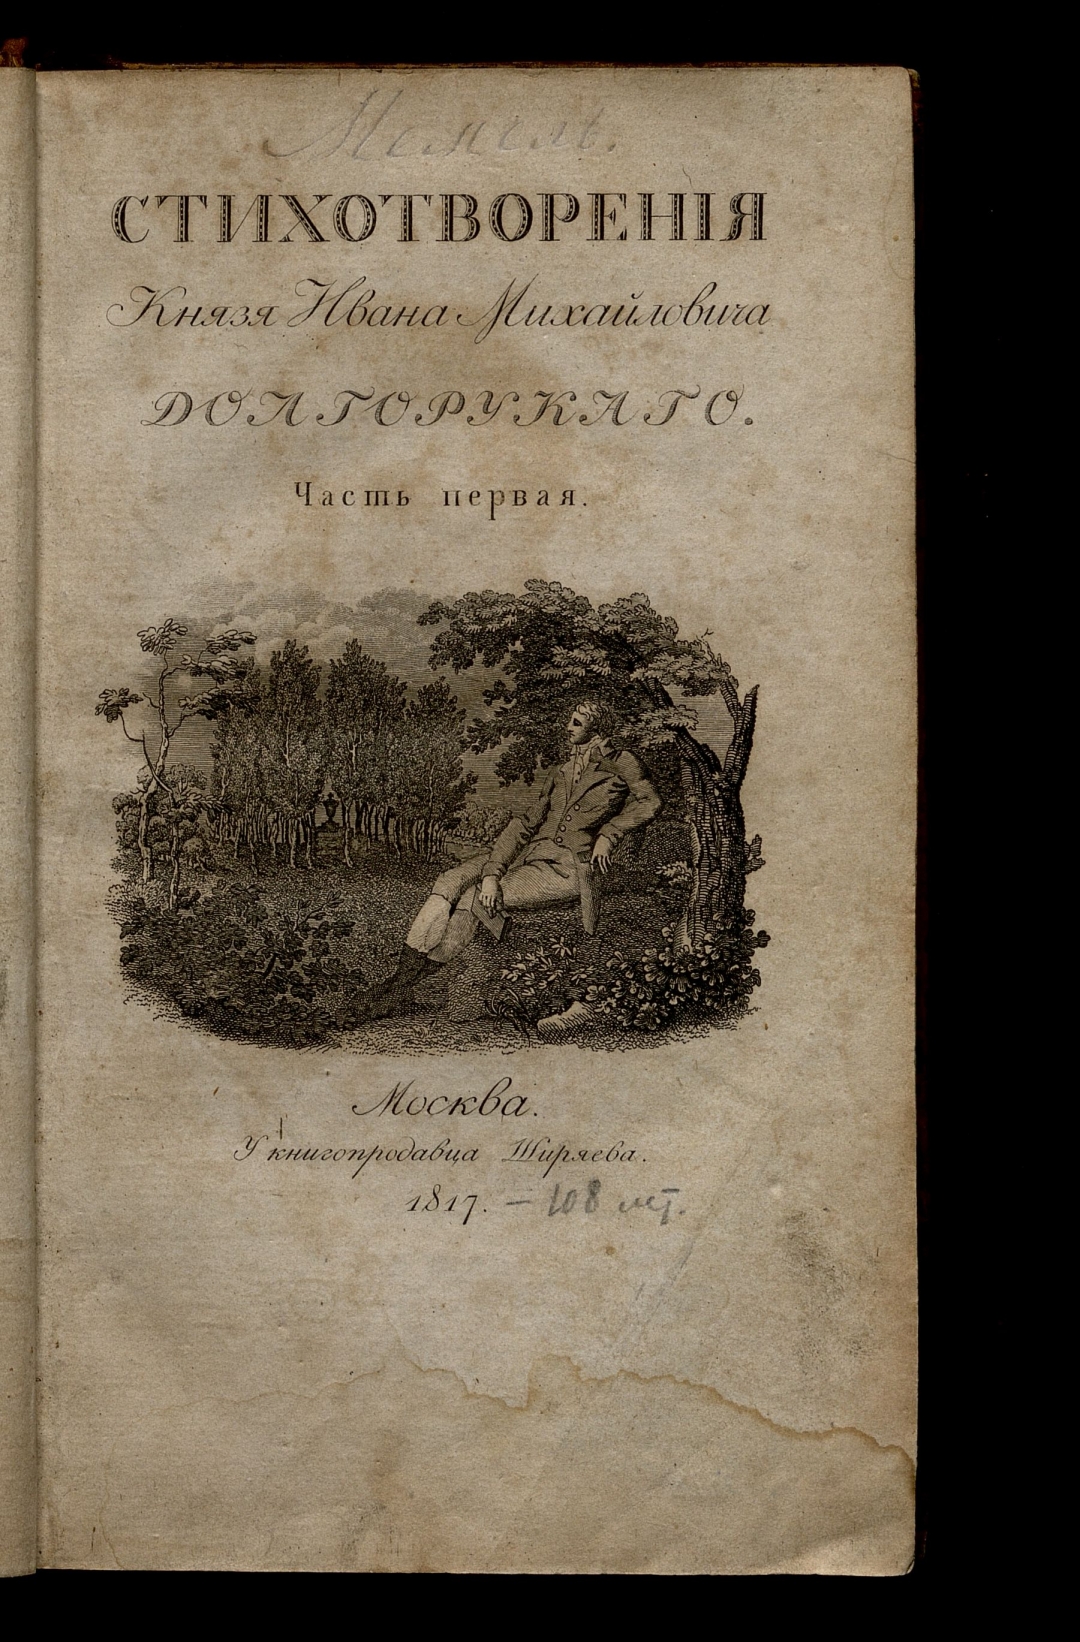 СТИХОТВОРЕНІЯ
Князя Ивана Михайловича
ДОЛГОРУКАГО.
Часть первая.
Москва.
У книгопродавца Ширяева.
1817. – 108 лет.